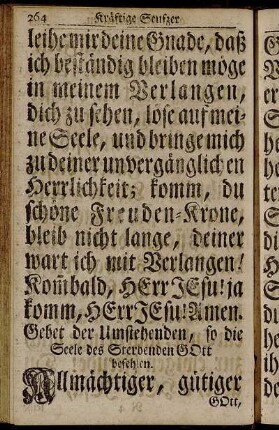 264 Kräftige Seufzer
leihe mir deine Gnade, daß
ich beständig bleiben möge
in meinem Verlangen,
dich zu sehen, löse auf mei-
ne Seele, und bringe mich
zu deiner unvergänglichen
Herrlichkeit; komm, du
schöne Freuden-Krone,
bleib nicht lange, deiner
wart ich mit Verlangen!
Kom̃ bald, HErr JEsu! ja
komm, HErr JEsu! Amen.
Gebet der Umstehenden, so die
Seele des Sterbenden GOtt
befehlen.
Allmächtiger, gütiger
GOtt,